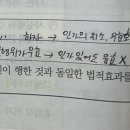 하자 → 인가의 치소, 무효
행위가 무효 → 인가 있어도 유효 X
이 행한 것과 동일한 법적효과를